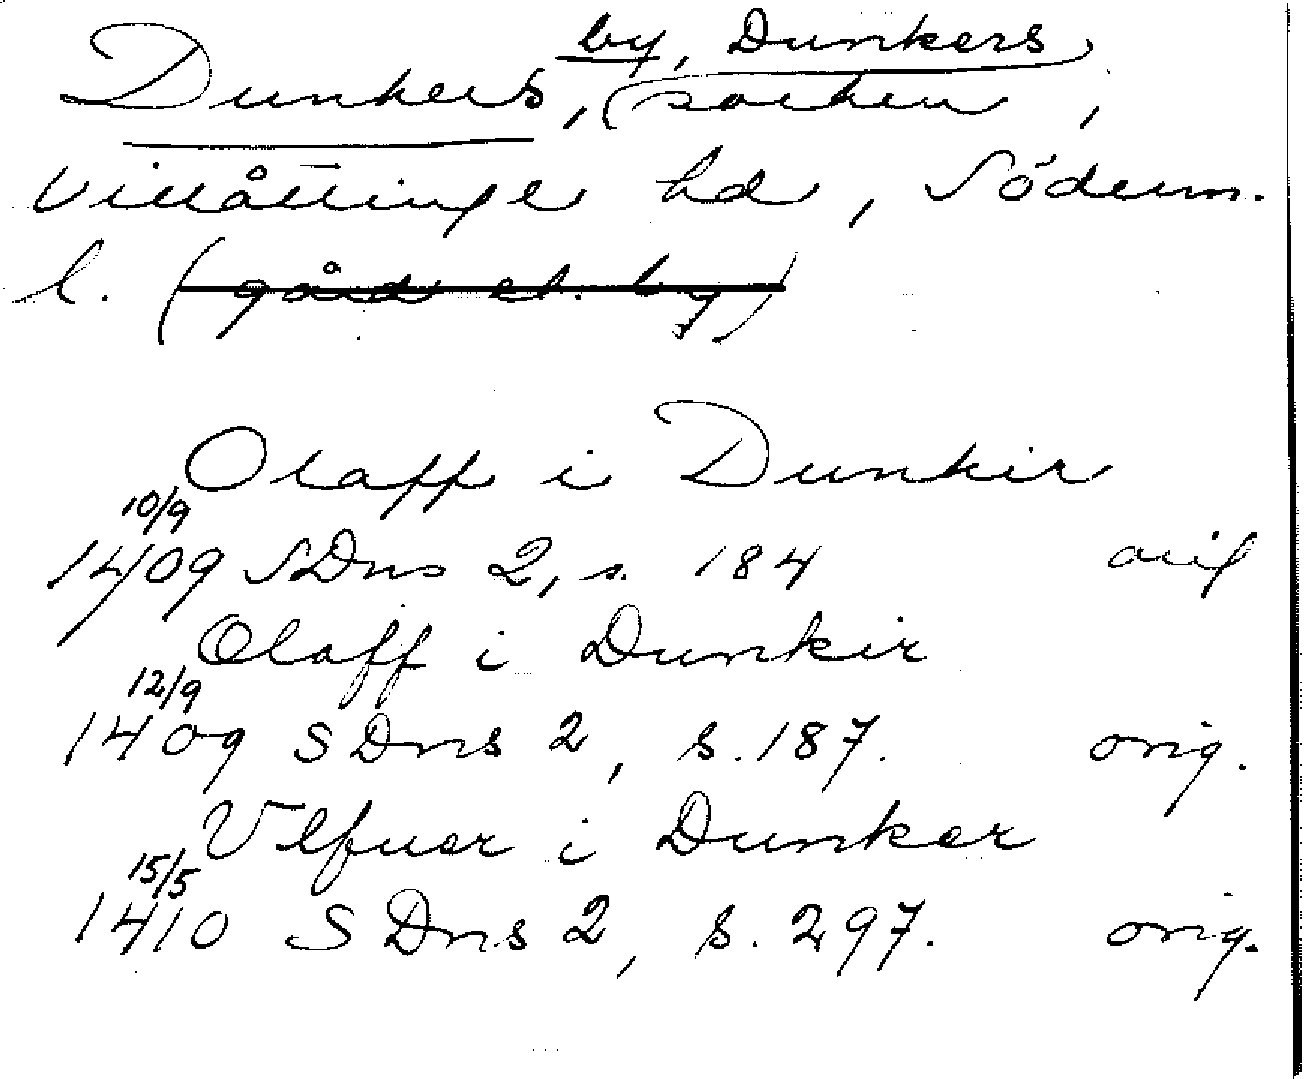 by, Dunkers
Dunkers, (socken,
Villåttinge hd, Söderm.
l. (gård el. by)
Olaff i Dunkir
10/9
1409 SDns 2, s. 184 orig
Olaff i Dunkir
12/9
1409 SDns 2, s. 187. orig.
Vlfuer i Dunker
15/5
1410 SDns 2, s. 297. orig.